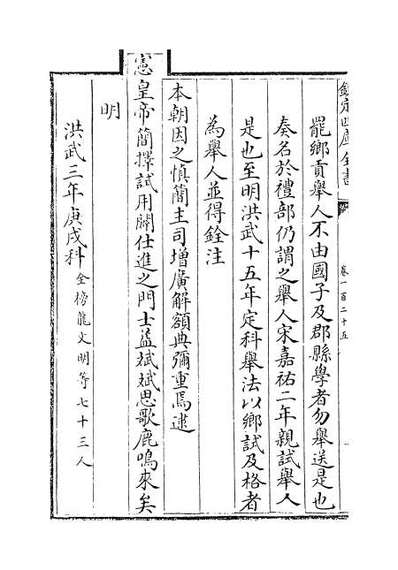 欽定四庫全書
卷一百二十五
罷鄉貢舉人不由國子及郡縣學者勿舉送是也
奏名於禮部仍謂之舉人宋嘉祐二年親試舉人
是也至明洪武十五年定科舉法以鄉試及格者
為舉人並得銓注
本朝因之慎簡主司增廣解額典彌重焉逮
憲皇帝簡擇試用闢仕進之門士益斌斌思歌鹿鳴來矣
明
洪武三年庚戌科全榜龍文明等七十三人